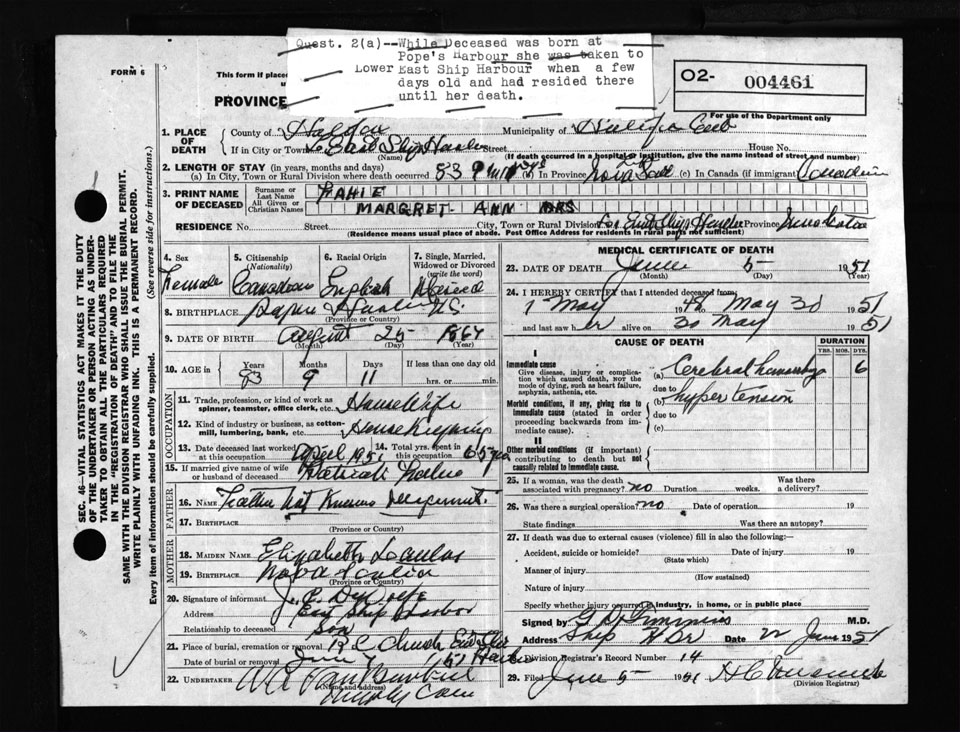 Quest. 2(a)--While Deceased was born at
Pope's Harbour she was taken to
Lower East Ship Harbour when a few
days old and had resided there
until her death.
FORM 6
This form if placed
PROVINCE
O2- 004461
For use of the Department only
1. PLACE OF DEATH
County of Halifax Municipality of Halifax
If in City or Town Lo East Ship Harbor Street House No.
(Name) (If death occurred in a hospital or institution, give the name instead of street and number)
2. LENGTH OF STAY (in years, months and days)
(a) In City, Town or Rural Division where death occurred 83 9 (b) In Province Nova Scotia (c) In Canada (if immigrant) Canadian
3. PRINT NAME OF DECEASED
Surname or Last Name FAHIE
All Given or Christian Names MARGRET ANN MRS
RESIDENCE No. Street City, Town or Rural Division Lo East Ship Harbor Province Nova Scotia
(Residence means usual place of abode. Post Office Address for residents in rural parts not sufficient)
4. Sex Female
5. Citizenship (Nationality) Canadian
6. Racial Origin English
7. Single, Married, Widowed or Divorced (write the word)
8. BIRTHPLACE Popes Harbor N.S.
(Province or Country)
9. DATE OF BIRTH August 25 1867
(Month) (Day) (Year)
10. AGE in Years Months Days If less than one day old
83 9 11 hrs. or min.
OCCUPATION
11. Trade, profession or kind of work as spinner, teamster, office clerk, etc. House Wife
12. Kind of industry or business, as cotton-mill, lumbering, bank, etc. House Keeping
13. Date deceased last worked at this occupation April 1951
14. Total yrs. spent in this occupation 65 yrs
15. If married give name of wife or husband of deceased
FATHER
16. Name Father Not Known
17. Birthplace
(Province or Country)
MOTHER
18. MAIDEN NAME Elizabeth
19. BIRTHPLACE Nova Scotia
(Province or Country)
20. Signature of informant J. P. DeWolfe
Address East Ship Harbor
Relationship to deceased son
21. Place of burial, cremation or removal R C Church East Ship Harbor
Date of burial or removal June 7 1951
22. UNDERTAKER
(Name and address)
MEDICAL CERTIFICATE OF DEATH
23. DATE OF DEATH June 5 1951
(Month) (Day) (Year)
24. I HEREBY CERTIFY that I attended deceased from:
1 May 1948 May 30 1951
and last saw her alive on 30 May 1951
CAUSE OF DEATH
DURATION
YRS. MOS. DYS.
I
Immediate cause
Give disease, injury or complication which caused death, NOT the mode of dying, such as heart failure, asphyxia, asthenia, etc.
(a) Cerebral hemorrhage 6
due to
Morbid conditions, if any, giving rise to immediate cause (stated in order proceeding backwards from immediate cause).
(b) hypertension
due to
(c)
II
Other morbid conditions (if important) contributing to death but not causally related to immediate cause.
25. If a woman, was the death associated with pregnancy? no Duration weeks. Was there a delivery?
26. Was there a surgical operation? no Date of operation 19
State findings Was there an autopsy?
27. If death was due to external causes (violence) fill in also the following:—
Accident, suicide or homicide? Date of injury 19
(State which)
Manner of injury
(How sustained)
Nature of injury
Specify whether injury occurred in industry, in home, or in public place
Signed by M.D.
Address Ship Hbr Date 22 June 1951
28. Division Registrar's Record Number 14
29. Filed June 5 1951
(Division Registrar)
SEC. 46—VITAL STATISTICS ACT MAKES IT THE DUTY
OF THE UNDERTAKER OR PERSON ACTING AS UNDER-
TAKER TO OBTAIN ALL THE PARTICULARS REQUIRED
IN THE "REGISTRATION OF DEATH" AND TO FILE THE
SAME WITH THE DIVISION REGISTRAR WHO SHALL ISSUE THE BURIAL PERMIT.
WRITE PLAINLY WITH UNFADING INK. THIS IS A PERMANENT RECORD.
Every item of information should be carefully supplied. (See reverse side for instructions.)